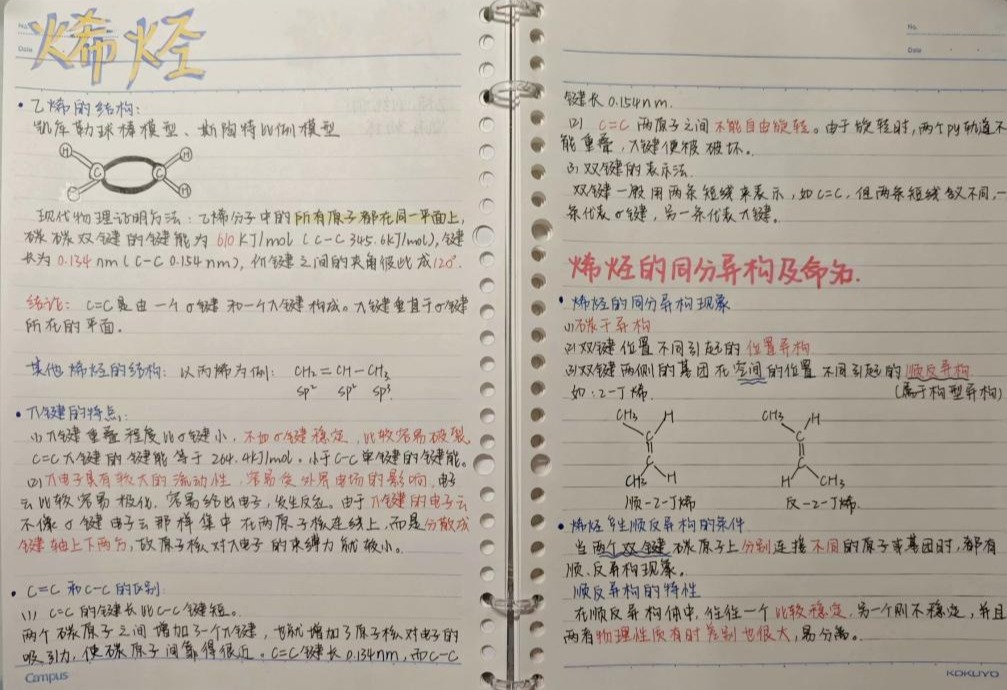 No.
Date
烯烃
• 乙烯的结构:
凯库勒球棒模型、斯陶特比例模型
H H
C C
H
现代物理证明方法:乙烯分子中的所有原子都在同一平面上,
碳碳双键的键能为 610 KJ/mol (C-C 345.6KJ/mol),键
长为 0.134 nm (C-C 0.154 nm),价键之间的夹角彼此成120°.
结论: C=C是由一个σ键和一个π键构成。π键垂直于σ键
所在的平面.
其他烯烃的结构:以丙烯为例: CH₂ = CH - CH₃
sp² sp² sp³
• π键的特点:
(1) π键重叠程度比σ键小,不如σ键稳定,比较容易破裂
C=C π键的键能等于 264.4KJ/mol,小于C-C单键的键能。
(2) π电子具有较大的流动性,容易受外界电场的影响,电子
云比较容易极化,容易给出电子,发生反应。由于π键的电子云
不像σ键电子云那样集中在两原子核连线上,而是分散成
键轴上下两方,故原子核对π电子的束缚力就较小。
• C=C 和 C-C的区别
(1) C=C 的键长比C-C键短。
两个碳原子之间增加了一个π键,也就增加了原子核对电子的
吸引力,使碳原子间靠得很近。C=C键长0.134nm,而C-C
Campus
No.
Date
键长 0.154nm.
(2) C=C 两原子之间不能自由旋转。由于旋转时,两个py轨道不
能重叠,π键便被破坏。
(3) 双键的表示法
双键一般用两条短线来表示,如C=C,但两条短线含义不同,一
条代表σ键,另一条代表π键。
烯烃的同分异构及命名.
• 烯烃的同分异构现象
(1)碳干异构
(2)双键位置不同引起的位置异构
(3)双键两侧的基团在空间的位置不同引起的顺反异构
如:2-丁烯. (属于构型异构)
CH₃ H CH₃ H
C C
C C
CH₃ H H CH₃
顺-2-丁烯 反-2-丁烯.
• 烯烃产生顺反异构的条件
当两个双键碳原子上分别连接不同的原子或基团时,都有
顺、反异构现象。
顺反异构的特性
在顺反异构体中,往往一个比较稳定,另一个则不稳定,并且
两者物理性质有时差别也很大,易分离。
KOKUYO